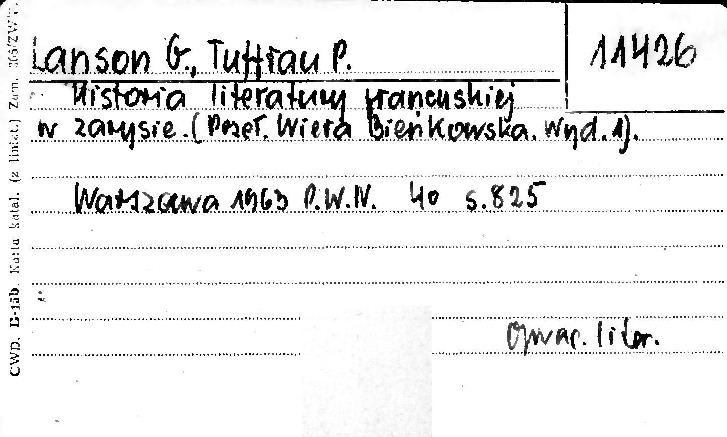 Lanson G., Tuffrau P.
11426
Historia literatury francuskiej
w zarysie. (Przeł. Wiera Bieńkowska. Wyd. 1).
Warszawa 1963 P.W.N. 4o s. 825
Oprac. liter.
CWD. D-15b. Karta katal. (z liniat.) Zam.